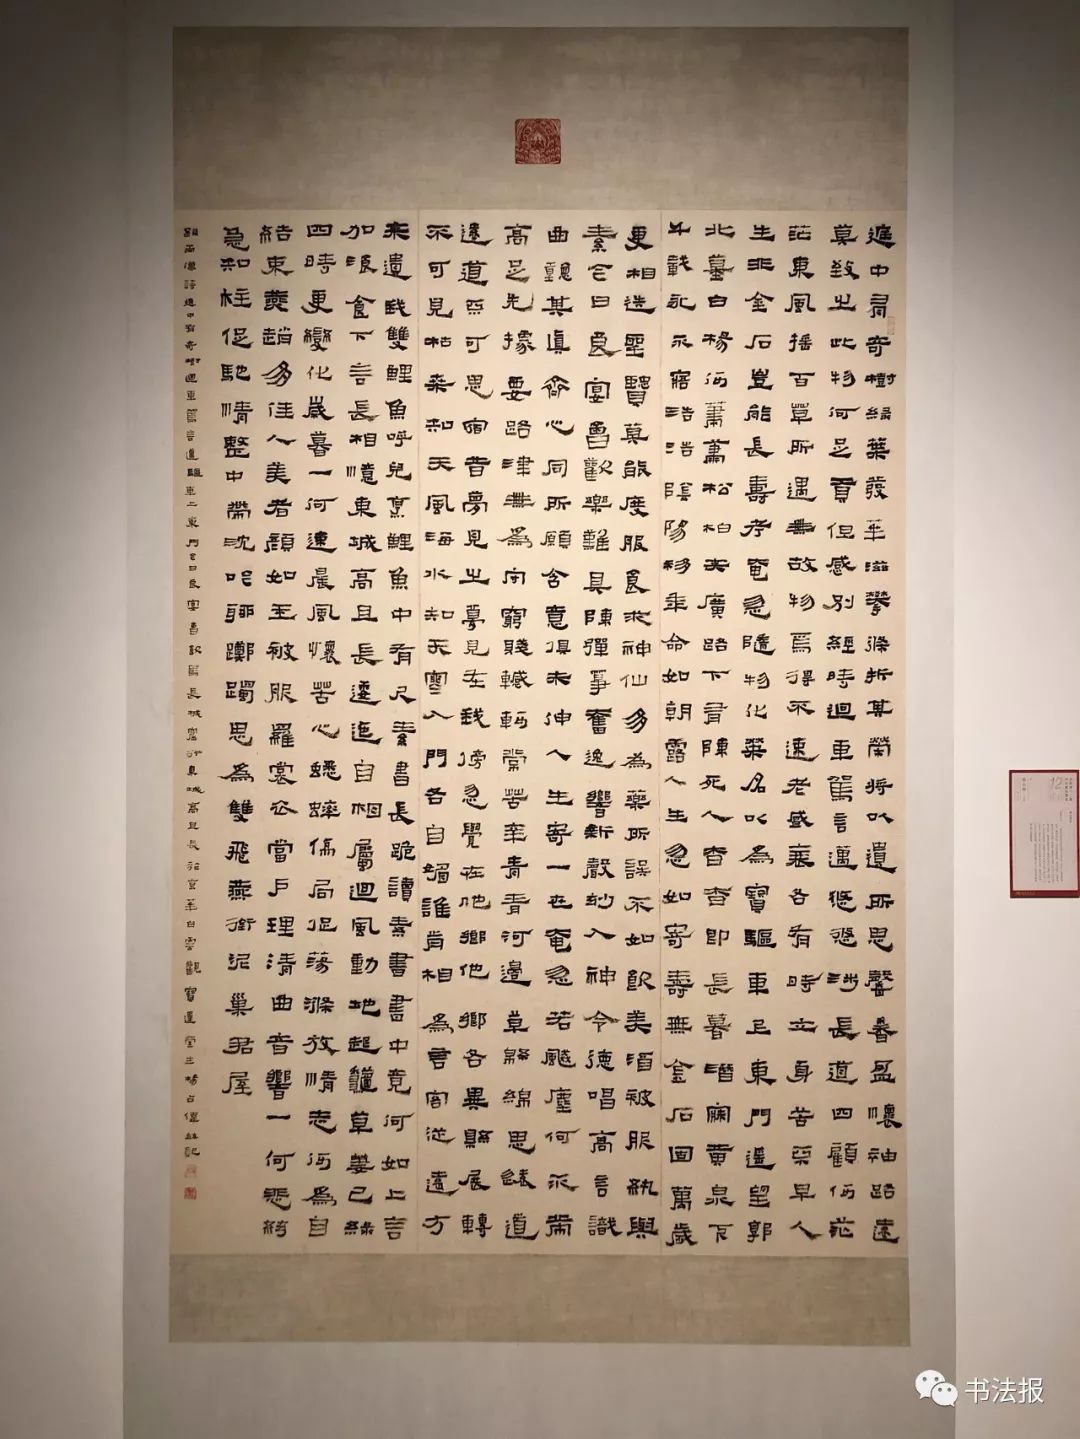 庭中有奇樹綠葉發華滋攀條折其榮將以遺所思馨香盈懷袖路遠
莫致之此物何足貢但感別經時迴車駕言邁悠悠涉長道四顧何茫
茫東風搖百草所遇無故物焉得不速老盛衰各有時立身苦不早人
生非金石豈能長壽考奄忽隨物化榮名以為寶驅車上東門遙望郭
北墓白楊何蕭蕭松柏夾廣路下有陳死人杳杳即長暮潛寐黃泉下
千載永不寤浩浩陰陽移年命如朝露人生忽如寄壽無金石固萬歲
更相送聖賢莫能度服食求神仙多為藥所誤不如飲美酒被服紈與
素今日良宴會歡樂難具陳彈箏奮逸響新聲妙入神令德唱高言識
曲聽其真齊心同所願含意俱未伸人生寄一世奄忽若飆塵何不策
高足先據要路津無為守窮賤轗軻常苦辛青青河邊草綿綿思遠道
遠道不可思宿昔夢見之夢見在我傍忽覺在他鄉他鄉各異縣展轉
不可見枯桑知天風海水知天寒入門各自媚誰肯相為言客從遠方
來遺我雙鯉魚呼兒烹鯉魚中有尺素書長跪讀素書書中竟何如上言
加湌食下言長相憶東城高且長逶迤自相屬迴風動地起秋草萋已綠
四時更變化歲暮一何速晨風懷苦心蟋蟀傷局促蕩滌放情志何為自
結束燕趙多佳人美者顏如玉被服羅裳衣當戶理清曲音響一何悲絃
急知柱促馳情整中帶沈吟聊躑躅思為雙飛燕銜泥巢君屋
錄兩漢詩庭中有奇樹迴車駕言邁驅車上東門今日良宴會飲馬長城窟行東城高且長於京華白雲觀寶蓮堂
书法报